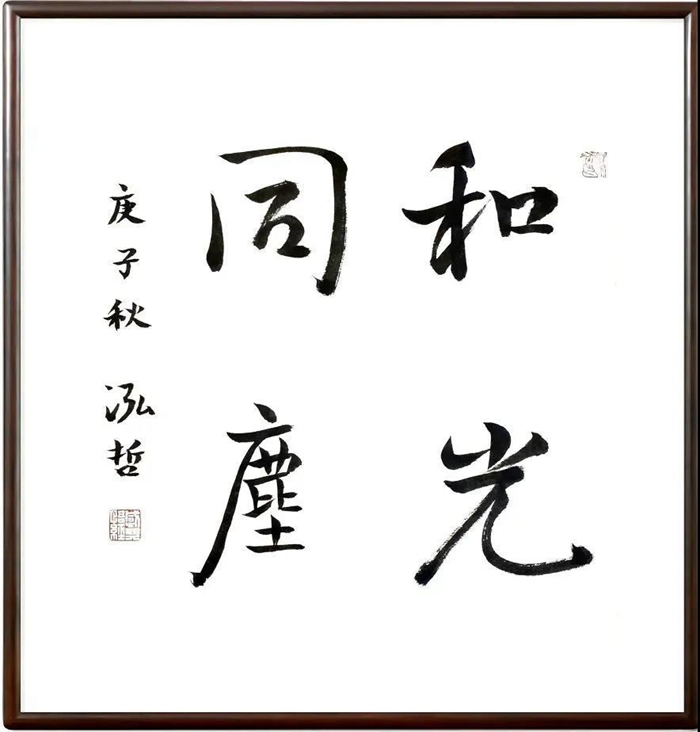 和光
同塵
庚子秋 泓哲